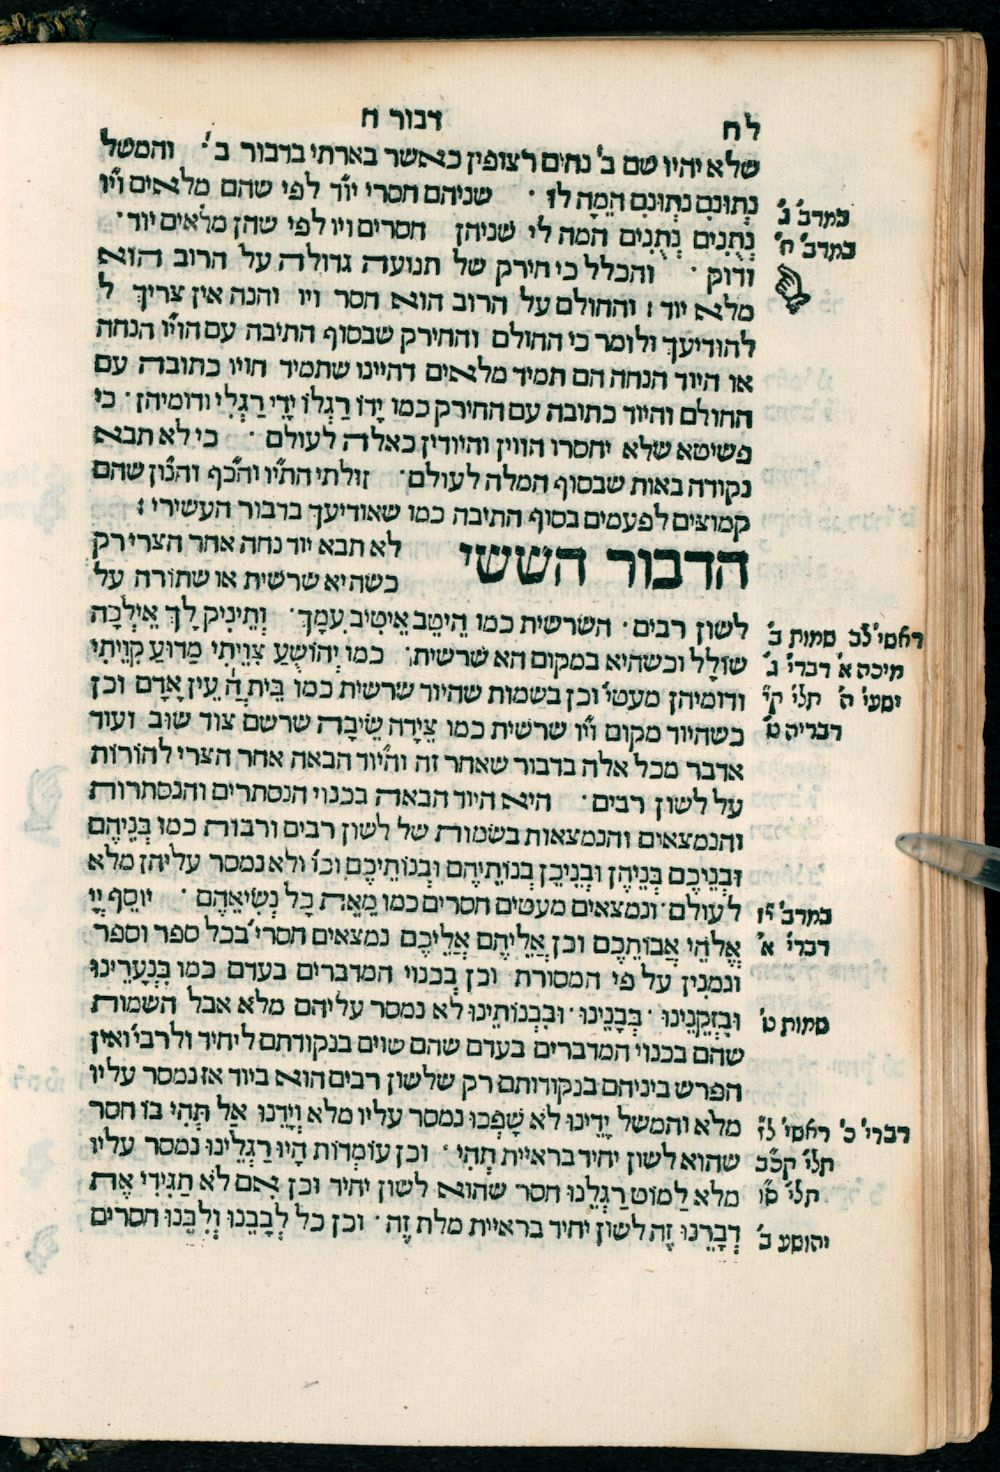 דבור ח
לח
שלא יהיו שם ב' נחים רצופין כאשר בארתי בדבור ב' · והמשל
נְתוּנִם נְתוּנִם הֵמָה לוֹ · שניהם חסרי יו"ד לפי שהם מלאים ו"יו
במדב' ג'
נְתֻנִים נְתֻנִים המה לי שניהן חסרים ויו לפי שהן מלאים יוד ·
במדב' ח'
ודוק · והכלל כי חירק של תנועה גדולה על הרוב הוא
מלא יוד : והחולם על הרוב הוא חסר ויו והנה אין צריך ל
להודיעך ולומר כי החולם והחירק שבסוף התיבה עם הו"יו הנחה
או היוד הנחה הם תמיד מלאים דהיינו שתמיד הויו כתובה עם
החולם והיוד כתובה עם החירק כמו יָדוֹ רַגְלוֹ יָדִי רַגְלִי ודומיהן · כי
פשיטא שלא יחסרו הווין והיודין כאלה לעולם · כי לא תבא
נקודה באות שבסוף המלה לעולם · זולתי הת"יו והכ"ף והנ"ון שהם
קמוצים לפעמים בסוף התיבה כמו שאודיעך בדבור העשירי :
הדבור הששי
לא תבא יוד נחה אחר הצרי רק
כשהיא שרשית או שתורה על
לשון רבים · השרשית כמו הֵיטֵב אֵיטִיב עִמָךְ · וְתֵינִיק לָךְ אֵילְכָה
ראשי' לב שמות ב'
שׁוֹלָל וכשהיא במקום הא שרשית · כמו יְהוֹשֻׁעַ צִוֵיתִי מַדוּעַ קִוֵיתִי
מיכה א' דברי' ג'
ודומיהן מעטי' וכן בשמות שהיוד שרשית כמו בֵּית הַ' עֵין אָדָם וכן
ישעי' ה' תלי' קי"
כשהיוד מקום ו"יו שרשית כמו צֵידָה שֵׂיבָה שרשם צוד שוב ועוד
דברי ה ט'
אדבר מכל אלה בדבור שאחר זה והי"וד הבאה אחר הצרי להורות
על לשון רבים · היא היוד הבאה בכנוי הנסתרים והנסתרות
והנמצאים והנמצאות בשמות של לשון רבים ורבות כמו בְּנֵיהֶם
וּבְנֵיכֶם בְּנֵיהֶן וּבְנֵיכֶן בְּנוֹתֵיהֶם וּבְנוֹתֵיכֶם וכו' ולא נמסר עליהן מלא
לעולם · ונמצאים מעטים חסרים כמו מֵאֵת כָּל נְשִׂיאֵהֶם · יוֹסֵף יְיָ
במדב' יז
אֱלֹהֵי אֲבוֹתֵכֶם וכן אֲלֵיהֶם אֲלֵיכֶם נמצאים חסרי' בכל ספר וספר
דברי' א'
ונמנין על פי המסורת וכן בכנוי המדברים בעדם כמו בִּנְעָרֵינוּ
וּבִזְקֵנֵינוּ · בְּבָנֵינוּ · וּבִבְנוֹתֵינוּ לא נמסר עליהם מלא אבל השמות
שמות ט'
שהם בכנוי המדברים בעדם שהם שוים בנקודתם ליחיד ולרבי' ואין
הפרש ביניהם בנקודותם רק שלשון רבים הוא ביוד אז נמסר עליו
מלא והמשל יָדֵינוּ לֹא שָׁפְכוּ נמסר עליו מלא וְיָדֵנוּ אַל תְּהִי בוֹ חסר
דברי' כ' ראשי' לז
שהוא לשון יחיד בראיית תְהִי · וכן עוֹמְדוֹת הָיוּ רַגְלֵינוּ נמסר עליו
תלי' קכ"ב
מלא לַמוֹט רַגְלֵנוּ חסר שהוא לשון יחיד וכן אִם לֹא תַגִידִי אֶת
תלי' סו
דְבָרֵנוּ זֶה לשון יחיד בראיית מלת זֶה · וכן כל לְבָבֵנוּ וְלִבֵּנוּ חסרים
יהושע ב'